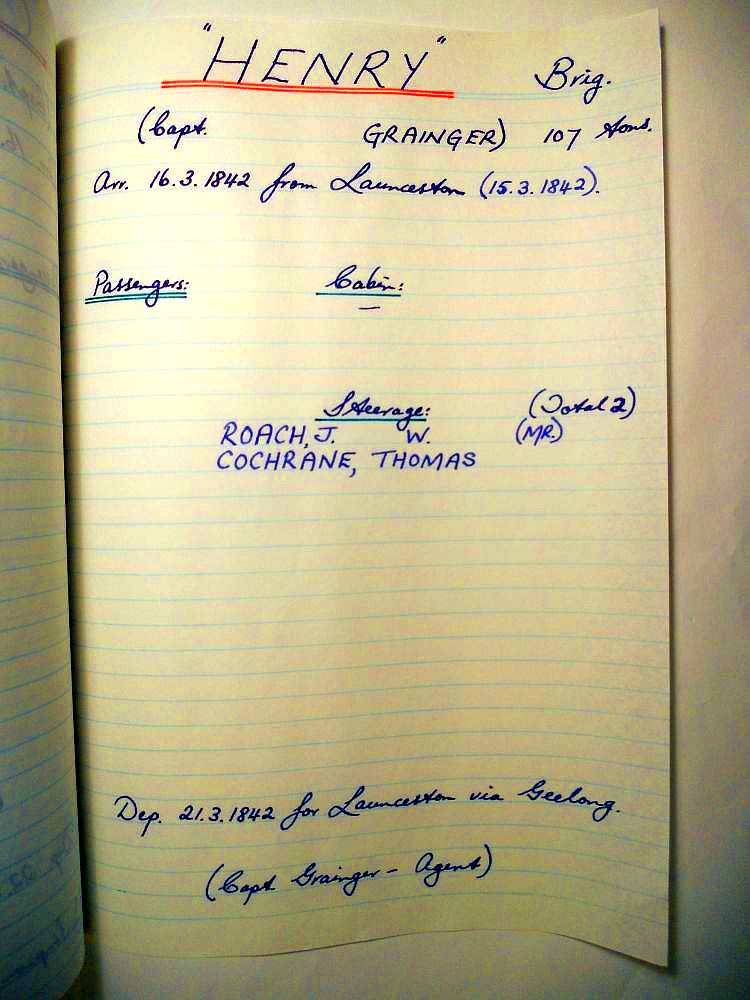 "HENRY" Brig.
(Capt. GRAINGER) 107 tons.
Arr. 16.3.1842 from Launceston (15.3.1842).
Passengers: Cabin:
—
Steerage: (Total 2)
ROACH, J. W. (MR.)
COCHRANE, THOMAS
Dep. 21.3.1842 for Launceston via Geelong.
(Capt. Grainger - Agent)